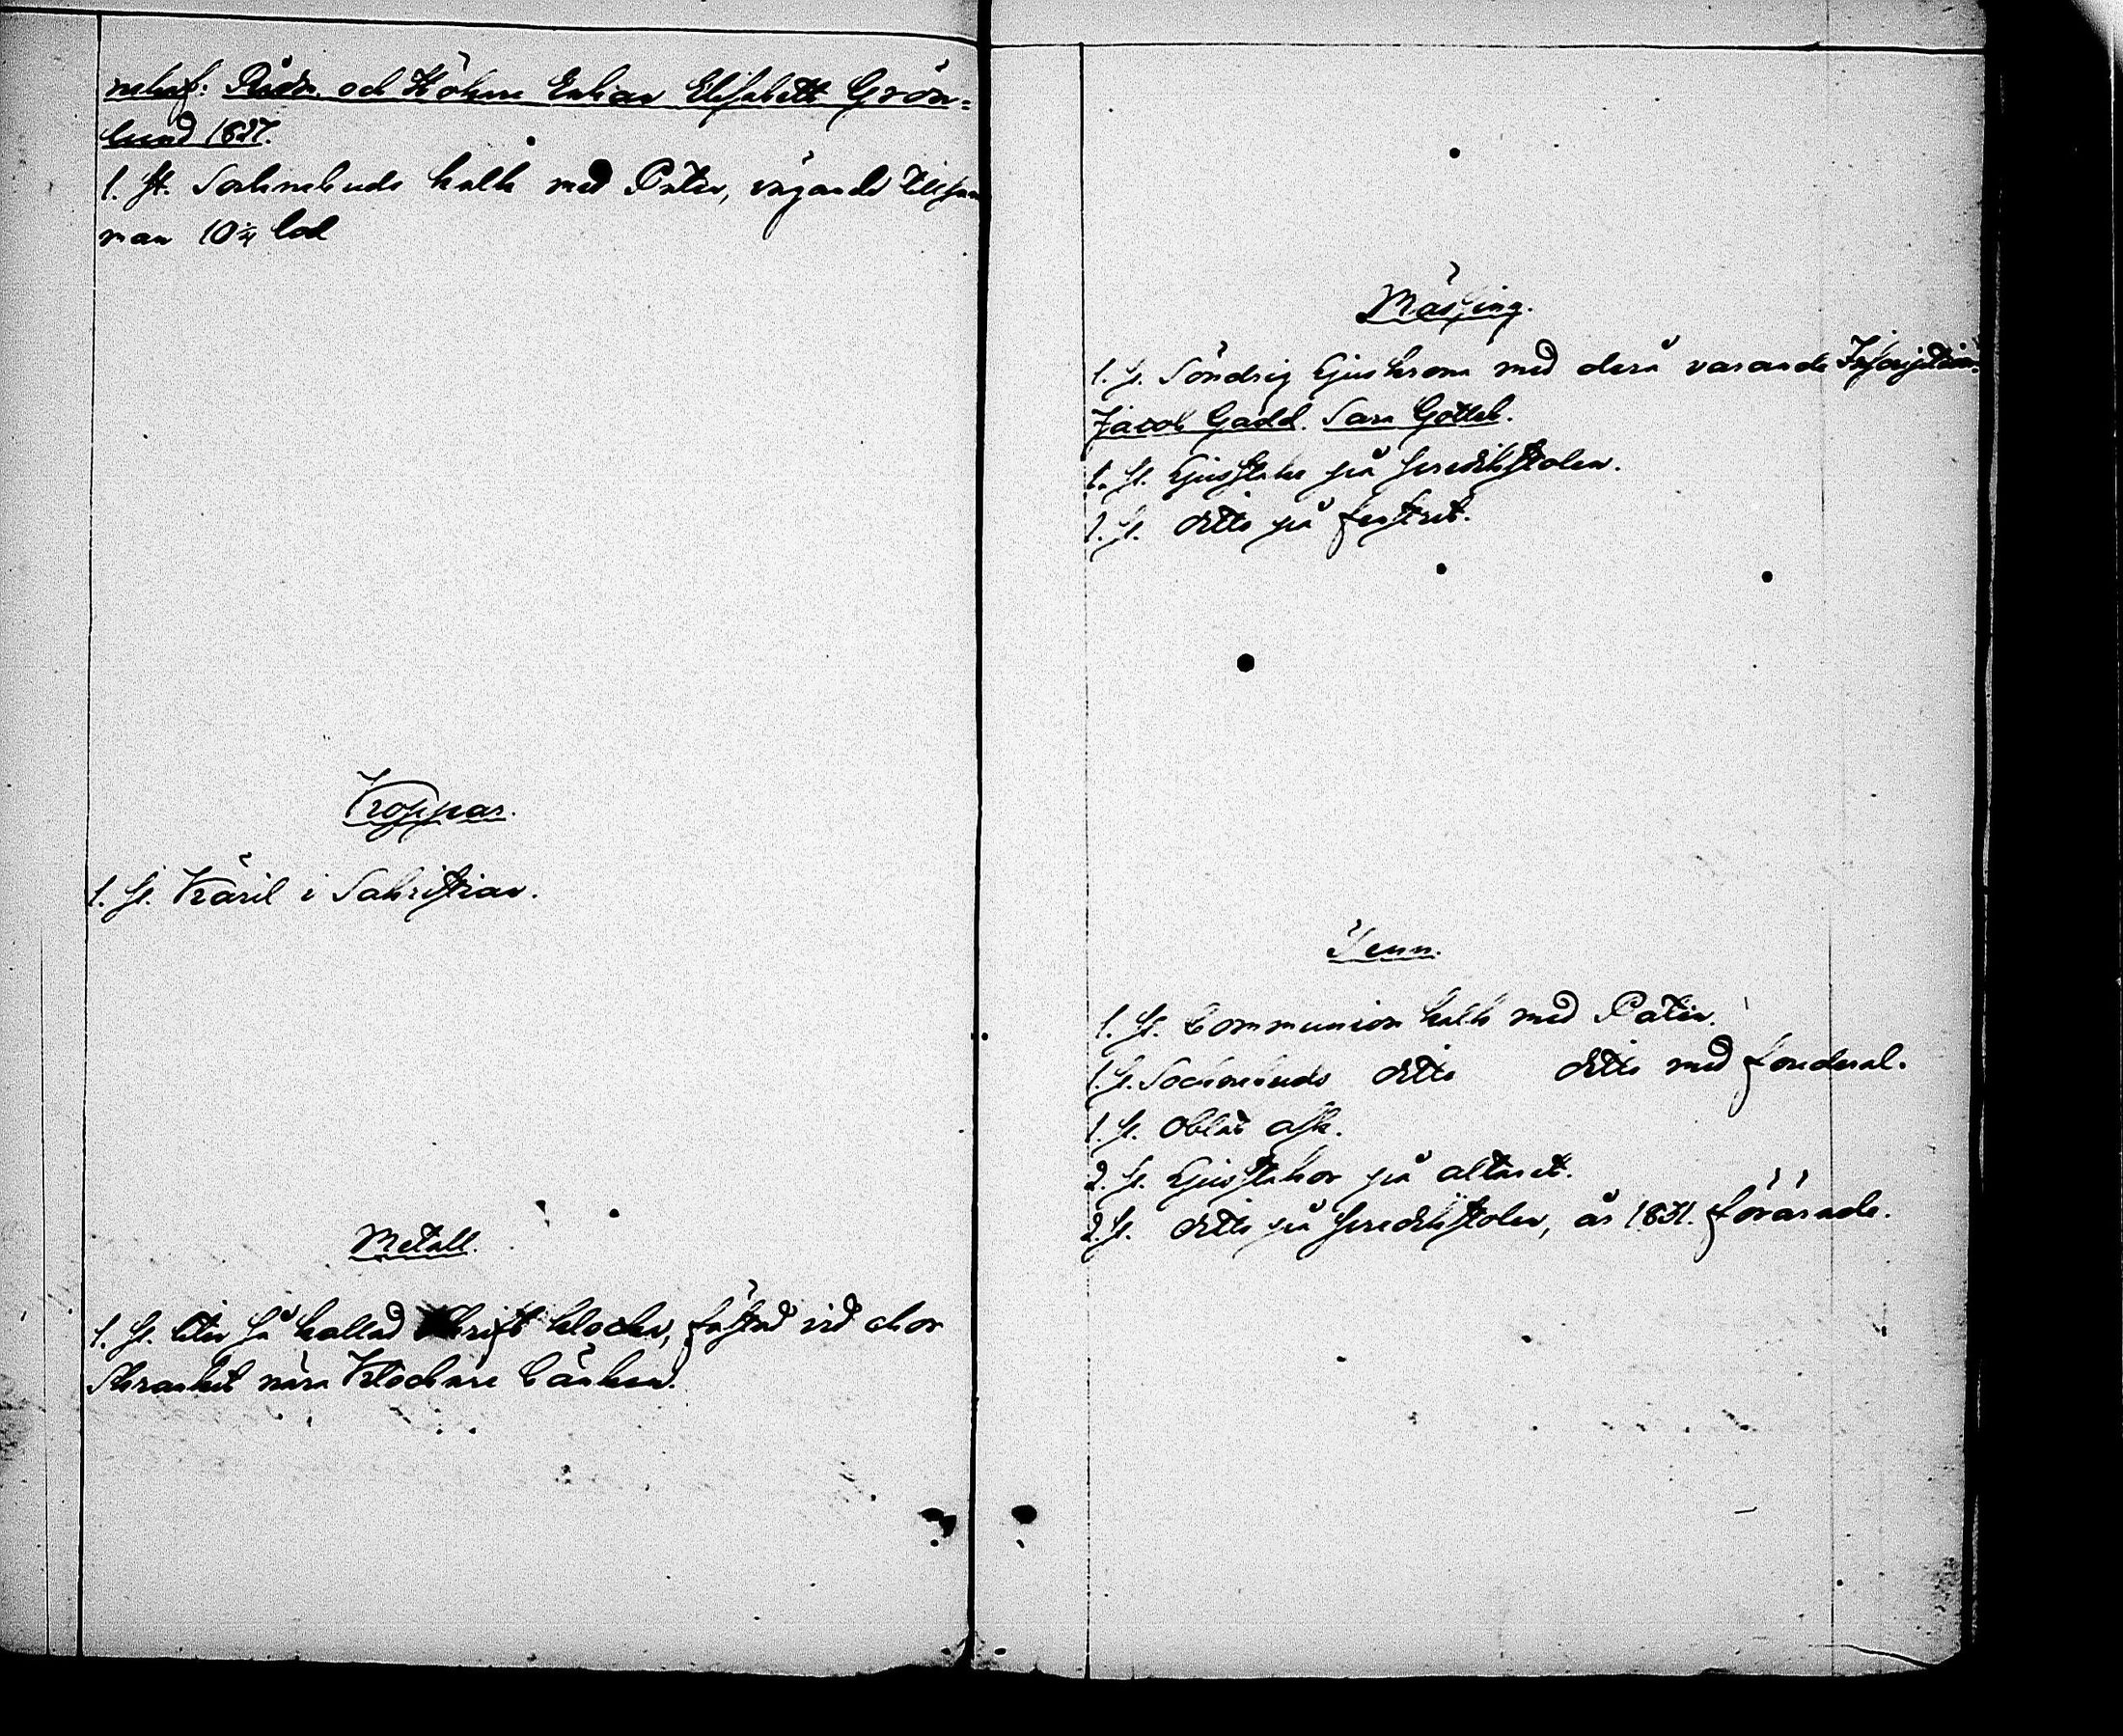 och Enkan Elisabeth Grön=
lund 1827.
1. st. Sockenbuds kalk med Paten, vägande tillsam
man 10 3/4 lod
Koppar.
1. st. Käril i Sakristian.
Metall.
1. st. liten så kallad Skrift klocka, fästad vid chor
Skranket nära Klockare bänken.
Mässing.
1. st. Söndrig Ljuskrona med derå varande
Jacob Gadd. Sara Gottleb.
1. st. Ljusstake på predikstolen.
1. st. ditto på
Tenn.
1. st. Communion kalk med Paten.
1. st. Sockenbuds ditto ditto med fouderal.
1. st. Oblat ask.
2. st. Ljusstakar på altaret.
2. st. ditto på predikstolen, år 1831. förärade.